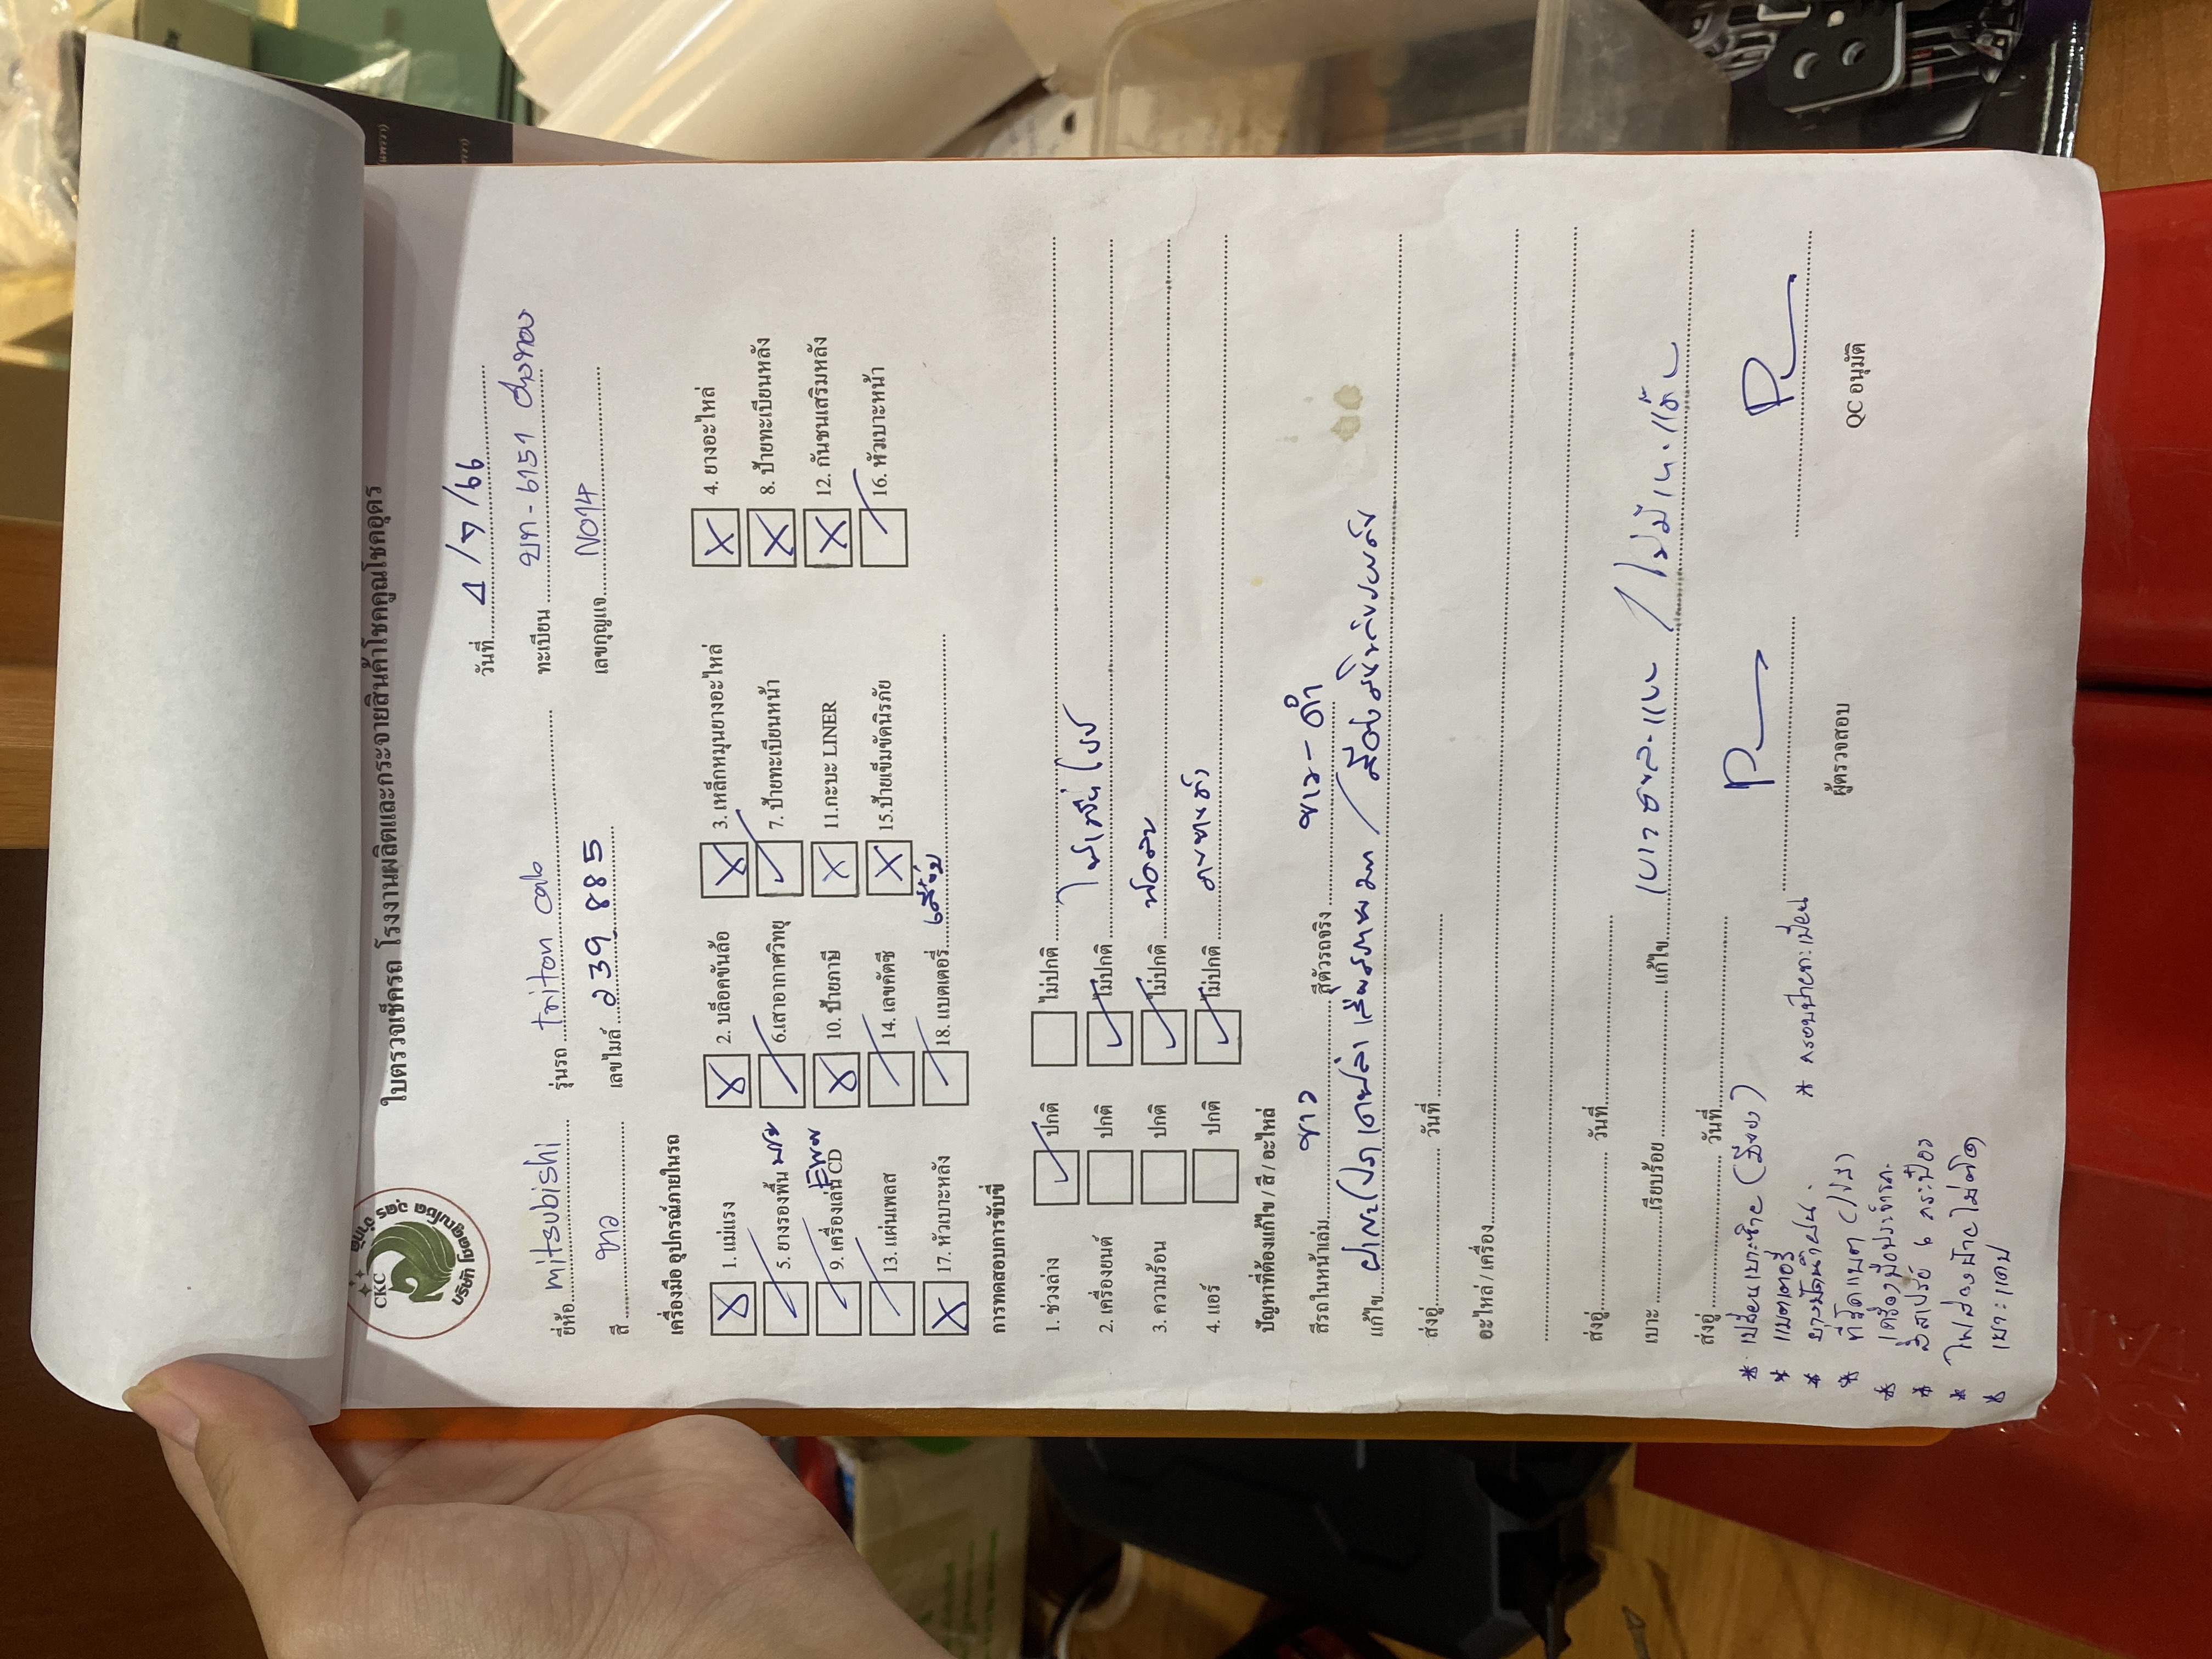 CKC
บริษัท โชคคูณโชค อุดร จำกัด
ใบตรวจเช็ครถ โรงงานผลิตและกระจายสินค้าโชคคูณโชคอุดร
วันที่ 4/7/66
ยี่ห้อ mitsubishi รุ่นรถ triton cab ทะเบียน บท-6151
สี ขาว เลขไมล์ 239,885 เลขกุญแจ N014
เครื่องมือ อุปกรณ์ภายในรถ
1. แม่แรง 2. บล็อคขันล้อ 3. เหล็กหมุนยางอะไหล่ 4. ยางอะไหล่
5. ยางรองพื้น 6.เสาอากาศวิทยุ 7. ป้ายทะเบียนหน้า 8. ป้ายทะเบียนหลัง
9. เครื่องเล่น CD 10. ป้ายภาษี 11.กะบะ LINER 12. กันชนเสริมหลัง
13. แผ่นเพลส 14. เลขคัตซี 15.ป้ายเข็มขัดนิรภัย 16. หัวเบาะหน้า
17. หัวเบาะหลัง 18. แบตเตอรี่
การทดสอบการขับขี่
1. ช่วงล่าง ปกติ ไม่ปกติ
2. เครื่องยนต์ ปกติ ไม่ปกติ
3. ความร้อน ปกติ ไม่ปกติ
4. แอร์ ปกติ ไม่ปกติ
ปัญหาที่ต้องแก้ไข / สี / อะไหล่
สีรถในหน้าเล่ม ขาว สีตัวรถจริง ขาว - ดำ
แก้ไข
ส่งอู่ วันที่
อะไหล่ / เครื่อง
ส่งอู่ วันที่
เบาะ เรียบร้อย แก้ไข
ส่งอู่ วันที่
* เปลี่ยนเบาะซ้าย (มีของ)
* แบตเตอรี่ * กรอบป้ายทะเบียน
* เครื่องมือประจำรถ
* สีสเปรย์ 6 กระป๋อง
* ไฟส่องป้ายไม่ติด
* เบาะแคป
ผู้ตรวจสอบ QC อนุมัติ